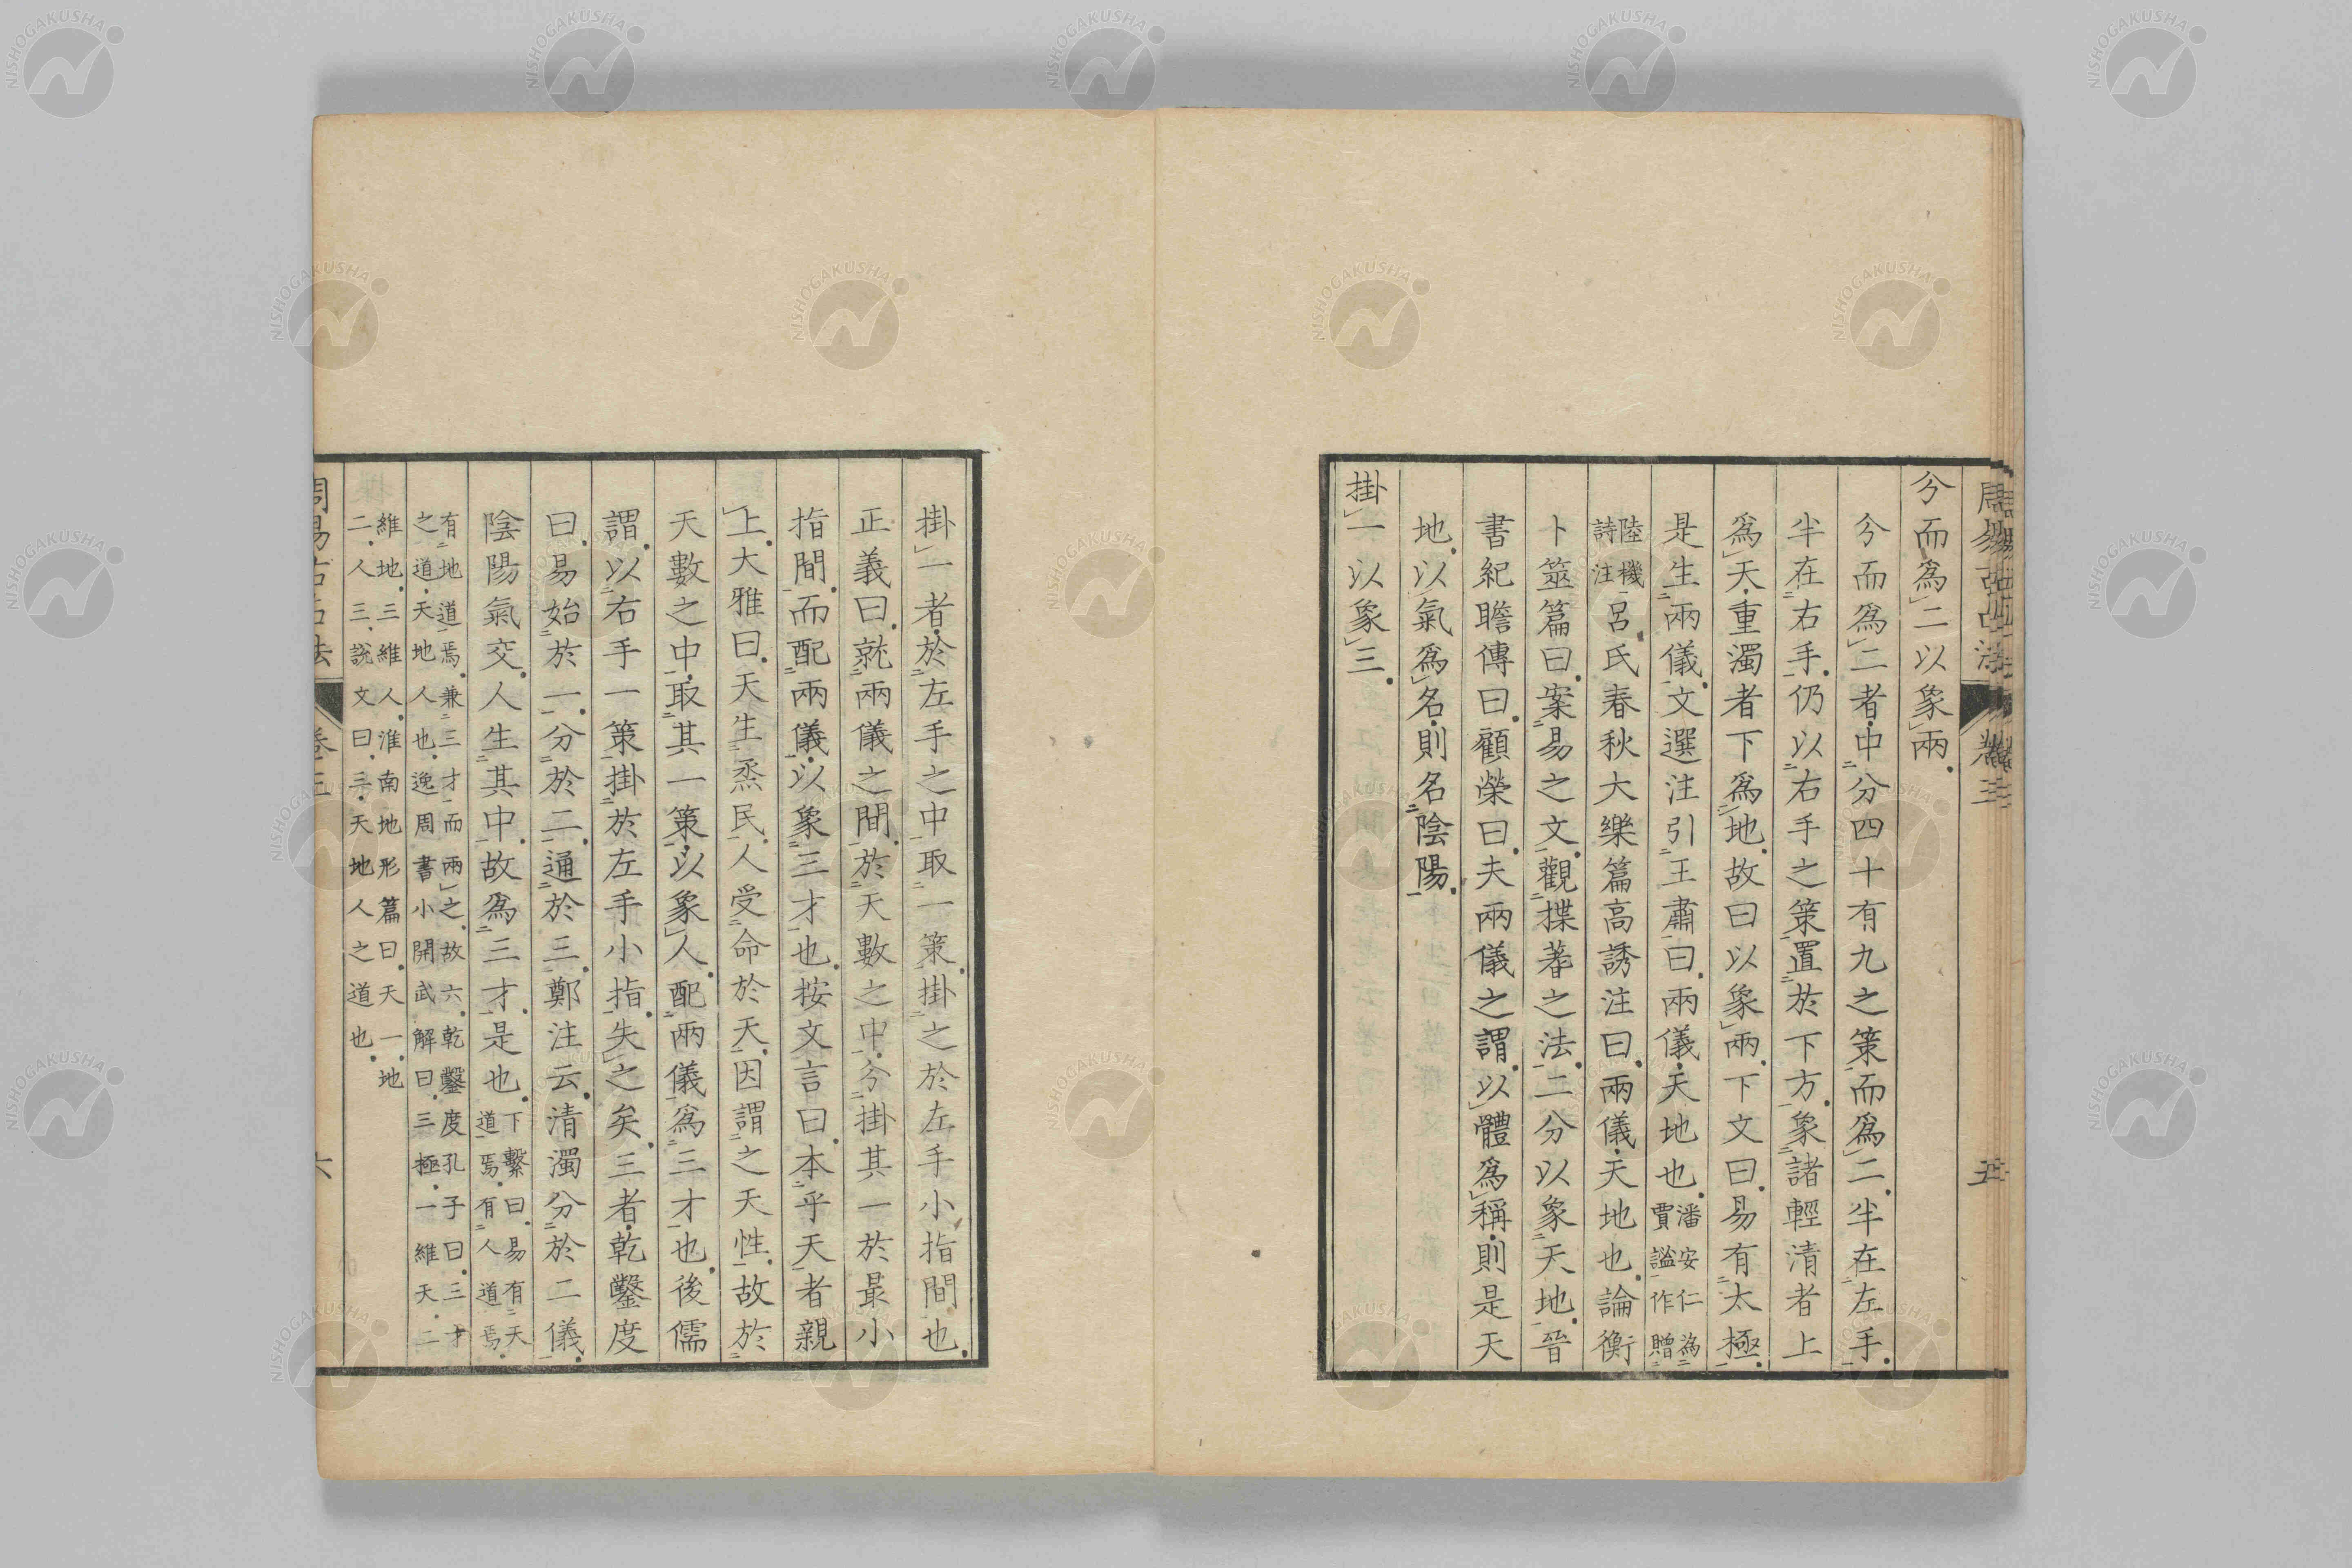 分而爲二以象兩
分而爲二者中分四十有九之策而爲二半在左手
半在右手仍以右手之策置於下方象諸輕清者上
爲天重濁者下爲地故曰以象兩下文曰易有太極
是生兩儀文選注引王肅曰兩儀天地也潘安仁爲賈謐作贈
陸機詩注呂氏春秋大樂篇高誘注曰兩儀天地也論衡
卜筮篇曰案易之文觀揲蓍之法二分以象天地晉
書紀瞻傳曰顧榮曰夫兩儀之謂以體爲稱則是天
地以氣爲名則名陰陽
掛一以象三
掛一者於左手之中取一策掛之於左手小指間也
正義曰就兩儀之間於天數之中分掛其一於最小
指間而配兩儀以象三才也按文言曰本乎天者親
上大雅曰天生烝民人受命於天因謂之天性故於
天數之中取其一策以象人配兩儀爲三才也後儒
謂以右手一策掛於左手小指失之矣三者乾鑿度
曰易始於一分於二通於三鄭注云清濁分於二儀
陰陽氣交人生其中故爲三才是也下繫曰易有天道焉有人道焉
有地道焉兼三才而兩之故六乾鑿度孔子曰三才之道天地人也逸周書小開武解曰三極一維天二
維地三維人淮南地形篇曰天一地二人三說文曰三天地人之道也
周易古占法 卷三 五
周易古占法 卷三 六
NISHOGAKUSHA